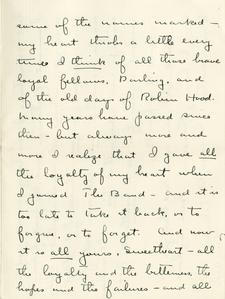 some of the names marked—
my heart throbs a little every
time I think of all those brave
loyal fellows, Darling, and
of the old days of Robin Hood.
Many years have passed since
then – but always more and
more I realize that I gave all
the loyalty of my heart when
I joined The Band – and it is
too late to take it back, or to
forgive, or to forget. And now
it is all yours, sweetheart – all
the loyalty and the bitterness, the
hopes and the failures – and all